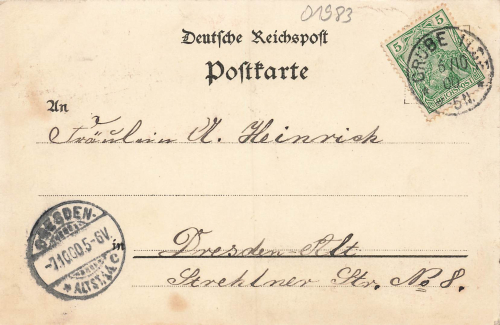 01983
Deutsche Reichspost
Postkarte
5 5
GRUBE
5 N.
An
Fräulein A. Heinrich
DRESDEN-
-7.10.00.5-6V.
* ALTST. 14 c
in
Dresden-Alt
Strehlner Str. No 8.